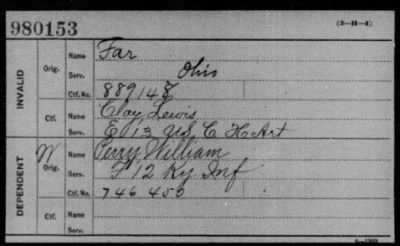 980153
(3-H-4)
INVALID
Orig.
Name Far
Serv. Ohio
Ctf. No. 889148
Ctf.
Name Clay Lewis
Serv. E 13 US C H Art
DEPENDENT
W
Orig.
Name Perry William
Serv. F 12 Ky Inf
Ctf. No. 746 450
Ctf.
Name
Serv.